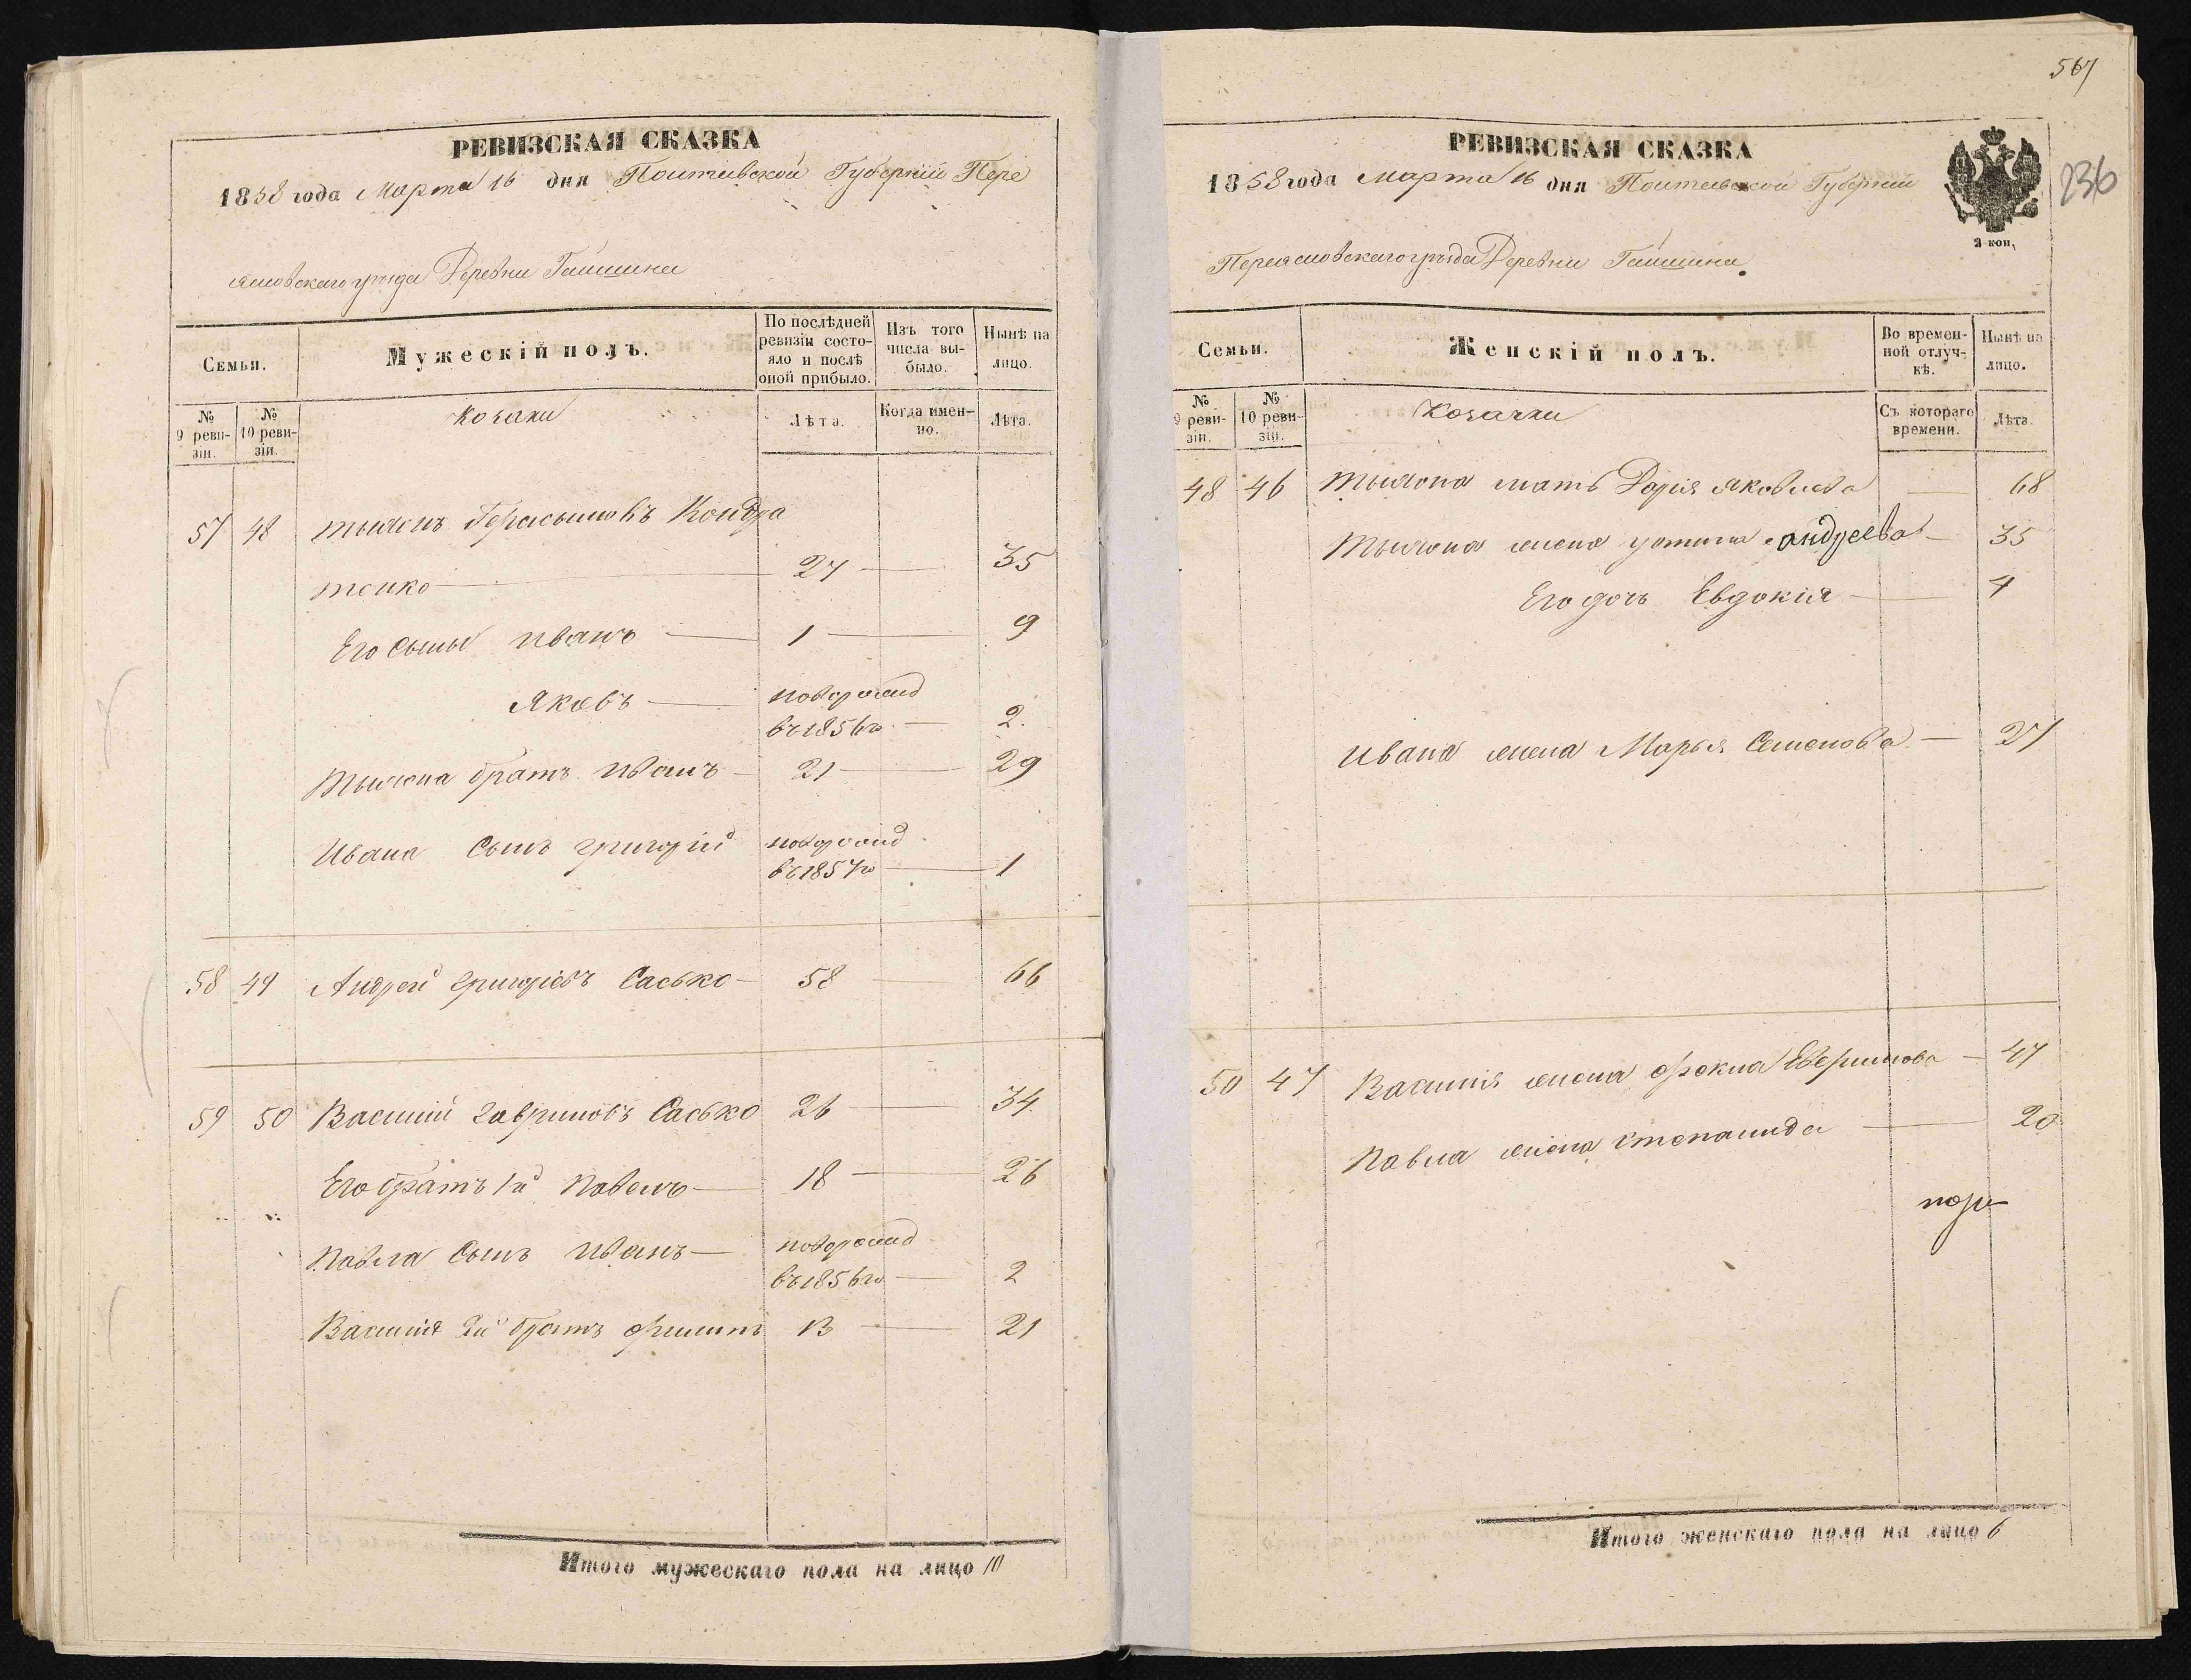 РЕВИЗСКАЯ СКАЗКА
1858 года Марта 16 дня Полтавской Губерніи Пере
яславскаго уѣзда Деревни Гайшина
Семьи.
Мужескій полъ.
По послѣдней ревизіи состояло и послѣ оной прибыло.
Изъ того числа выбыло.
Нынѣ на лицо.
№ 9 ревизіи.
№ 10 ревизіи.
Козаки
Лѣта.
Когда именно.
Лѣта.
57 48 Тихонъ Герасимовъ Кондра
тенко 27 35
Его Сыны Иванъ 1 9
Яковъ новорожд
въ 1856го 2.
Тихона братъ Иванъ 21 29
Ивана Сынъ Григорій новорожд
въ 1857го 1
58 49 Андрей Григоріевъ Сасько 58 66
59 50 Василій Гавриловъ Сасько 26 34
Его братъ 1й Павелъ 18 26
Павла Сынъ Иванъ новорожд
въ 1856го 2
Василія 2й братъ Филипъ 13 21
Итого мужескаго пола на лицо 10
567
РЕВИЗСКАЯ СКАЗКА
236
1858 года Марта 16 дня Полтавской Губерніи
2 коп.
Переяславскаго уѣзда Деревни Гайшина.
Семьи.
Женскій полъ.
Во временной отлучкѣ.
Нынѣ на лицо.
№ 9 ревизіи.
№ 10 ревизіи.
Козачки
Съ котораго времени.
Лѣта.
48 46 Тихона мать Дарія Яковлева 68
Тихона жена Устина Андреева 35
Его дочь Евдокія 4
Ивана жена Марья Семенова 27
50 47 Василія жена 47
Павла жена Степанида 20
Итого женскаго пола на лицо 6